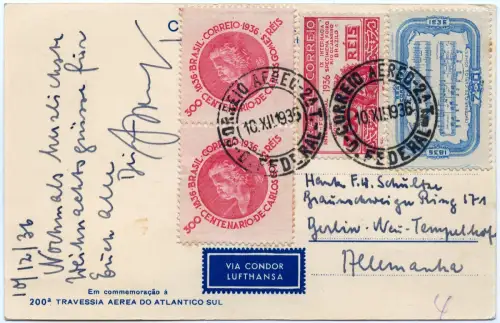 10/12/36
Nochmals herzlichste
Weihnachtsgrüsse für
Euch alle
1836 · BRASIL · CORREIO · 1936
300 RÉIS
CENTENARIO · DE · CARLOS GOMES
1836 · BRASIL · CORREIO · 1936
300
CENTENARIO · DE · CARLOS
CORREIO
RÉIS
BRASIL
1936
1836
1936
CORREIO AEREO - 2A T.
10.XII.1936
D. FEDERAL
CORREIO AEREO - 2A T.
10.XII.1936
D. FEDERAL
Braunschweiger Ring 171
Berlin-Neu-Tempelhof
Allemanha
VIA CONDOR
LUFTHANSA
Em commemoração á
200ª TRAVESSIA AEREA DO ATLANTICO SUL